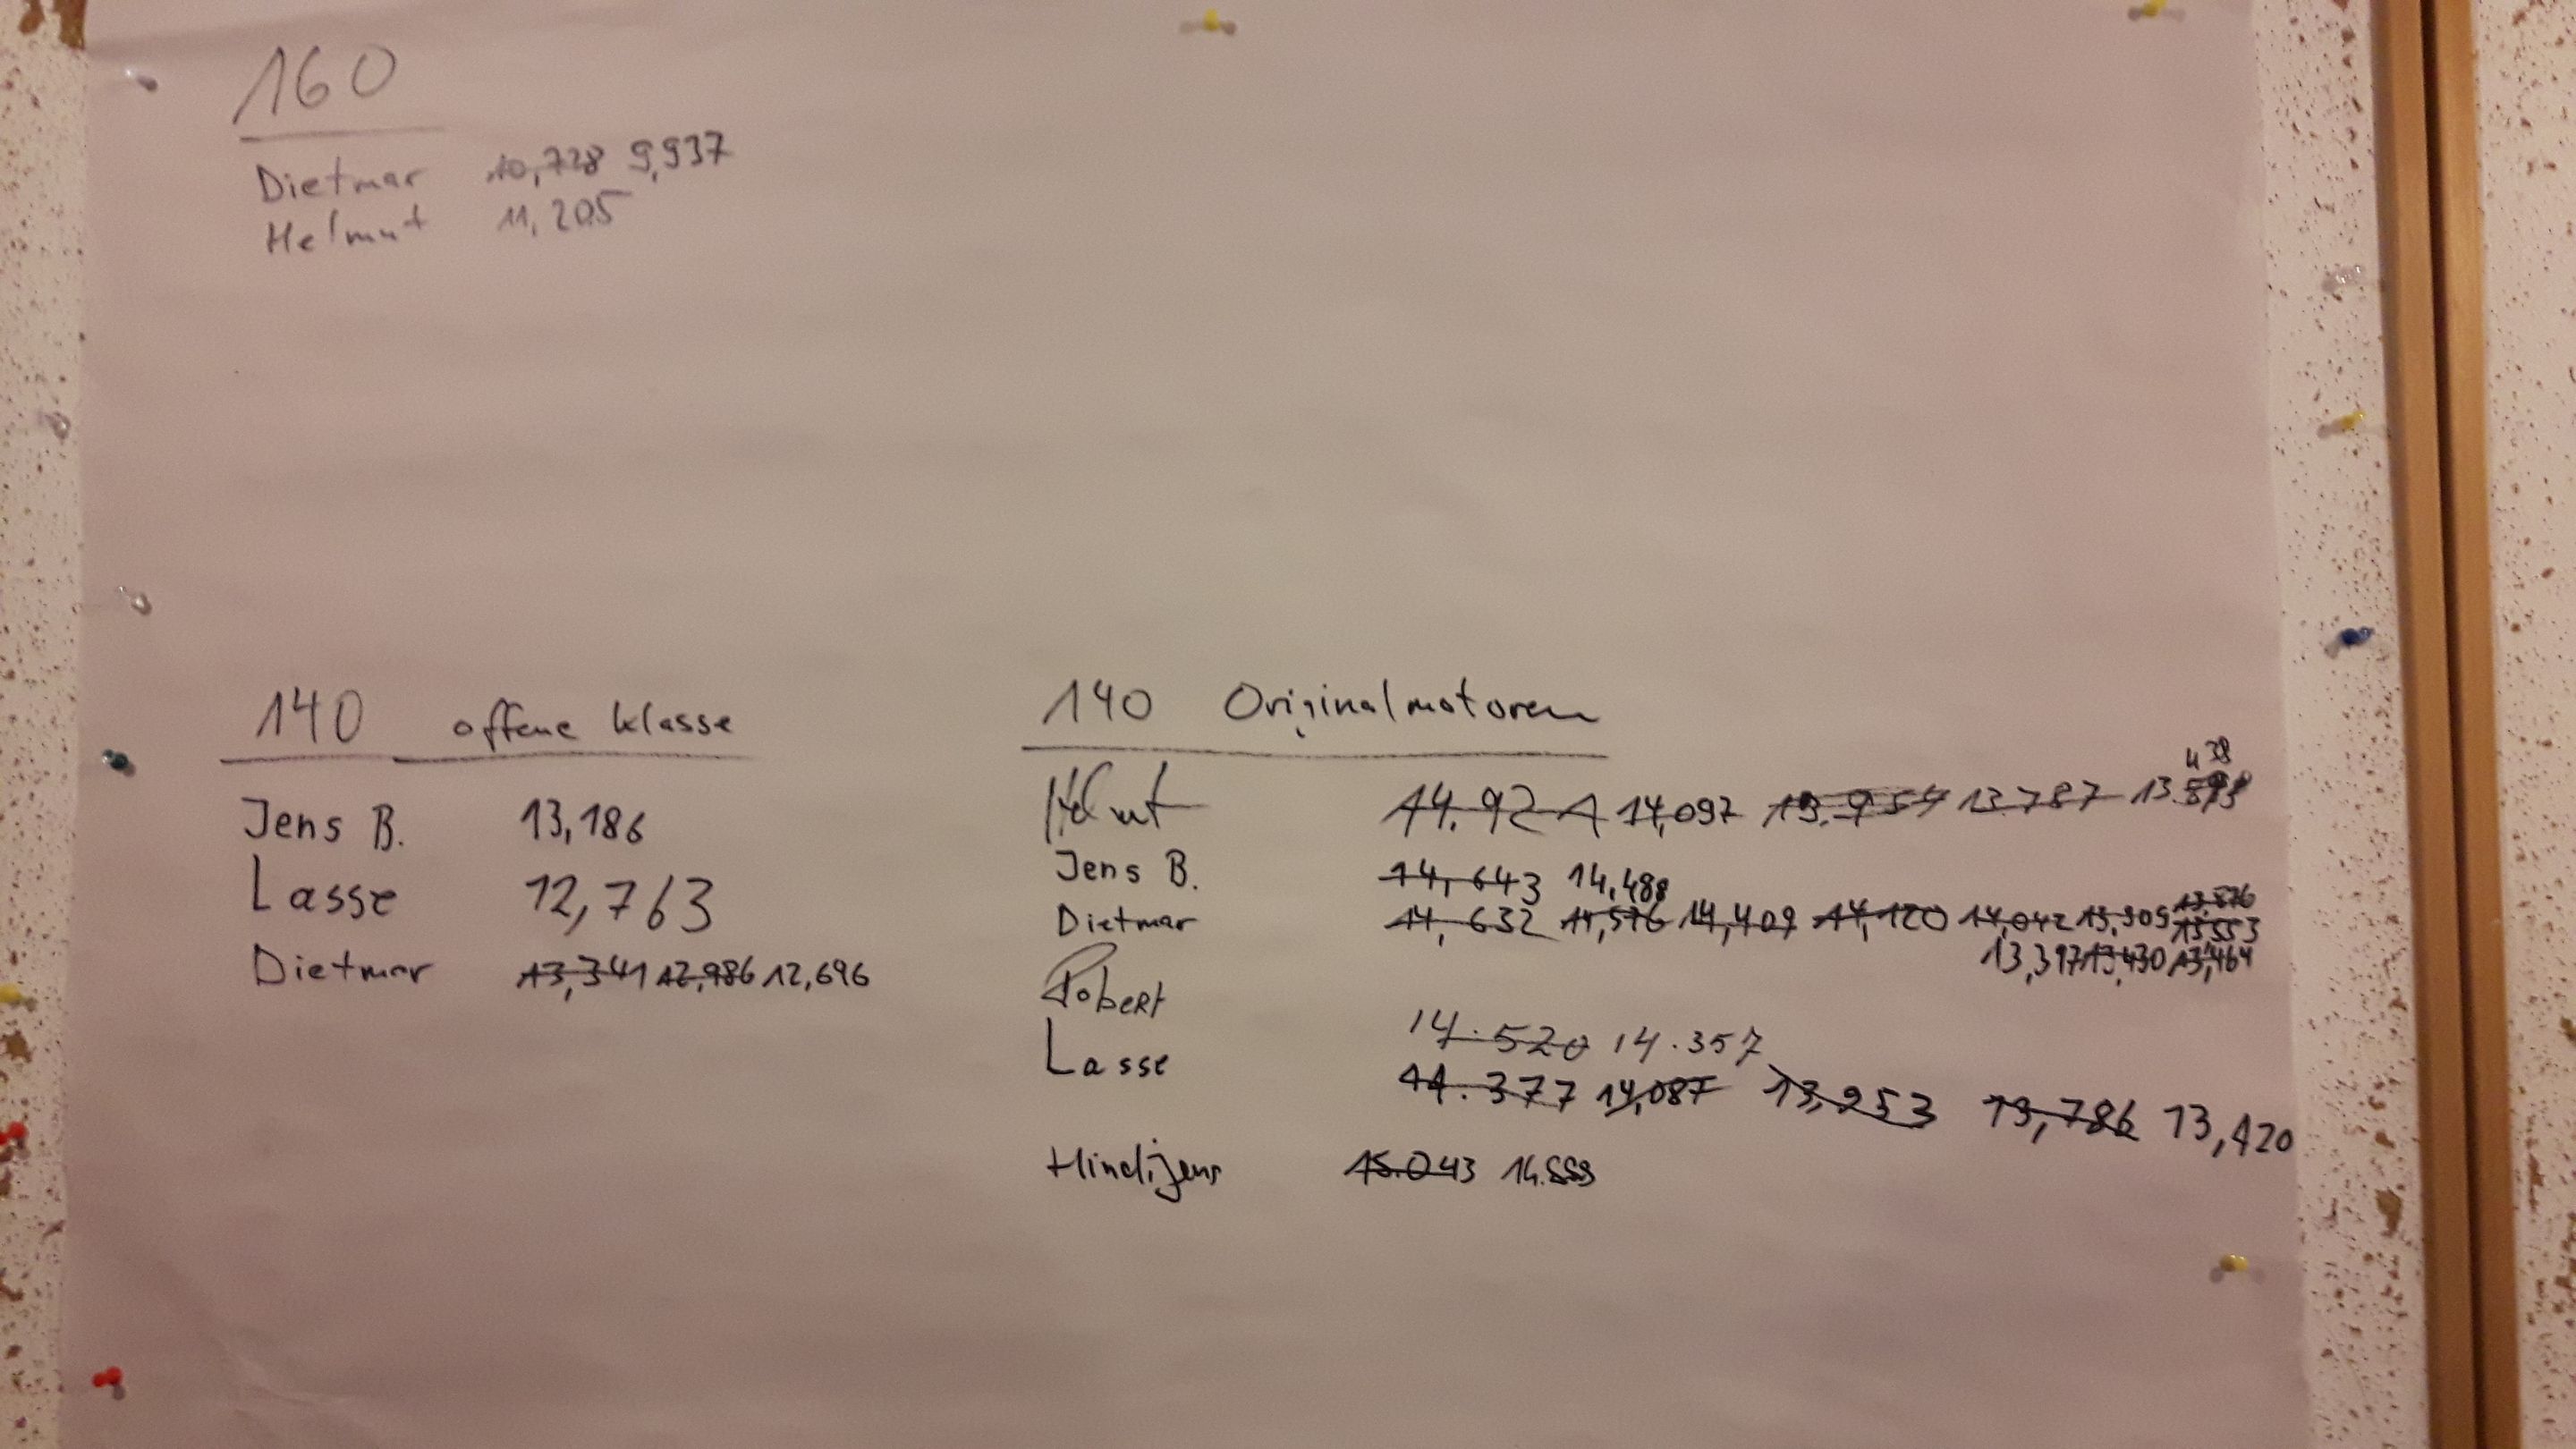 160
Dietmar 10,728 9,937
Helmut 11,205
140 offene Klasse
Jens B. 13,186
Lasse 12,763
Dietmar 13,341 12,986 12,696
140 Originalmotoren
438
Helmut 14.921 14,097 13.954 13.787 13.
Jens B. 14,643 14,488
13,576
Dietmar 14,632 14,516 14,409 14,120 14,042 13,909 13,553
13,397 13,430 13,464
Robert 14.520 14.357
Lasse 14.377 14,087 13,953 13,786 13,420
Hindijens 15.043 14.559